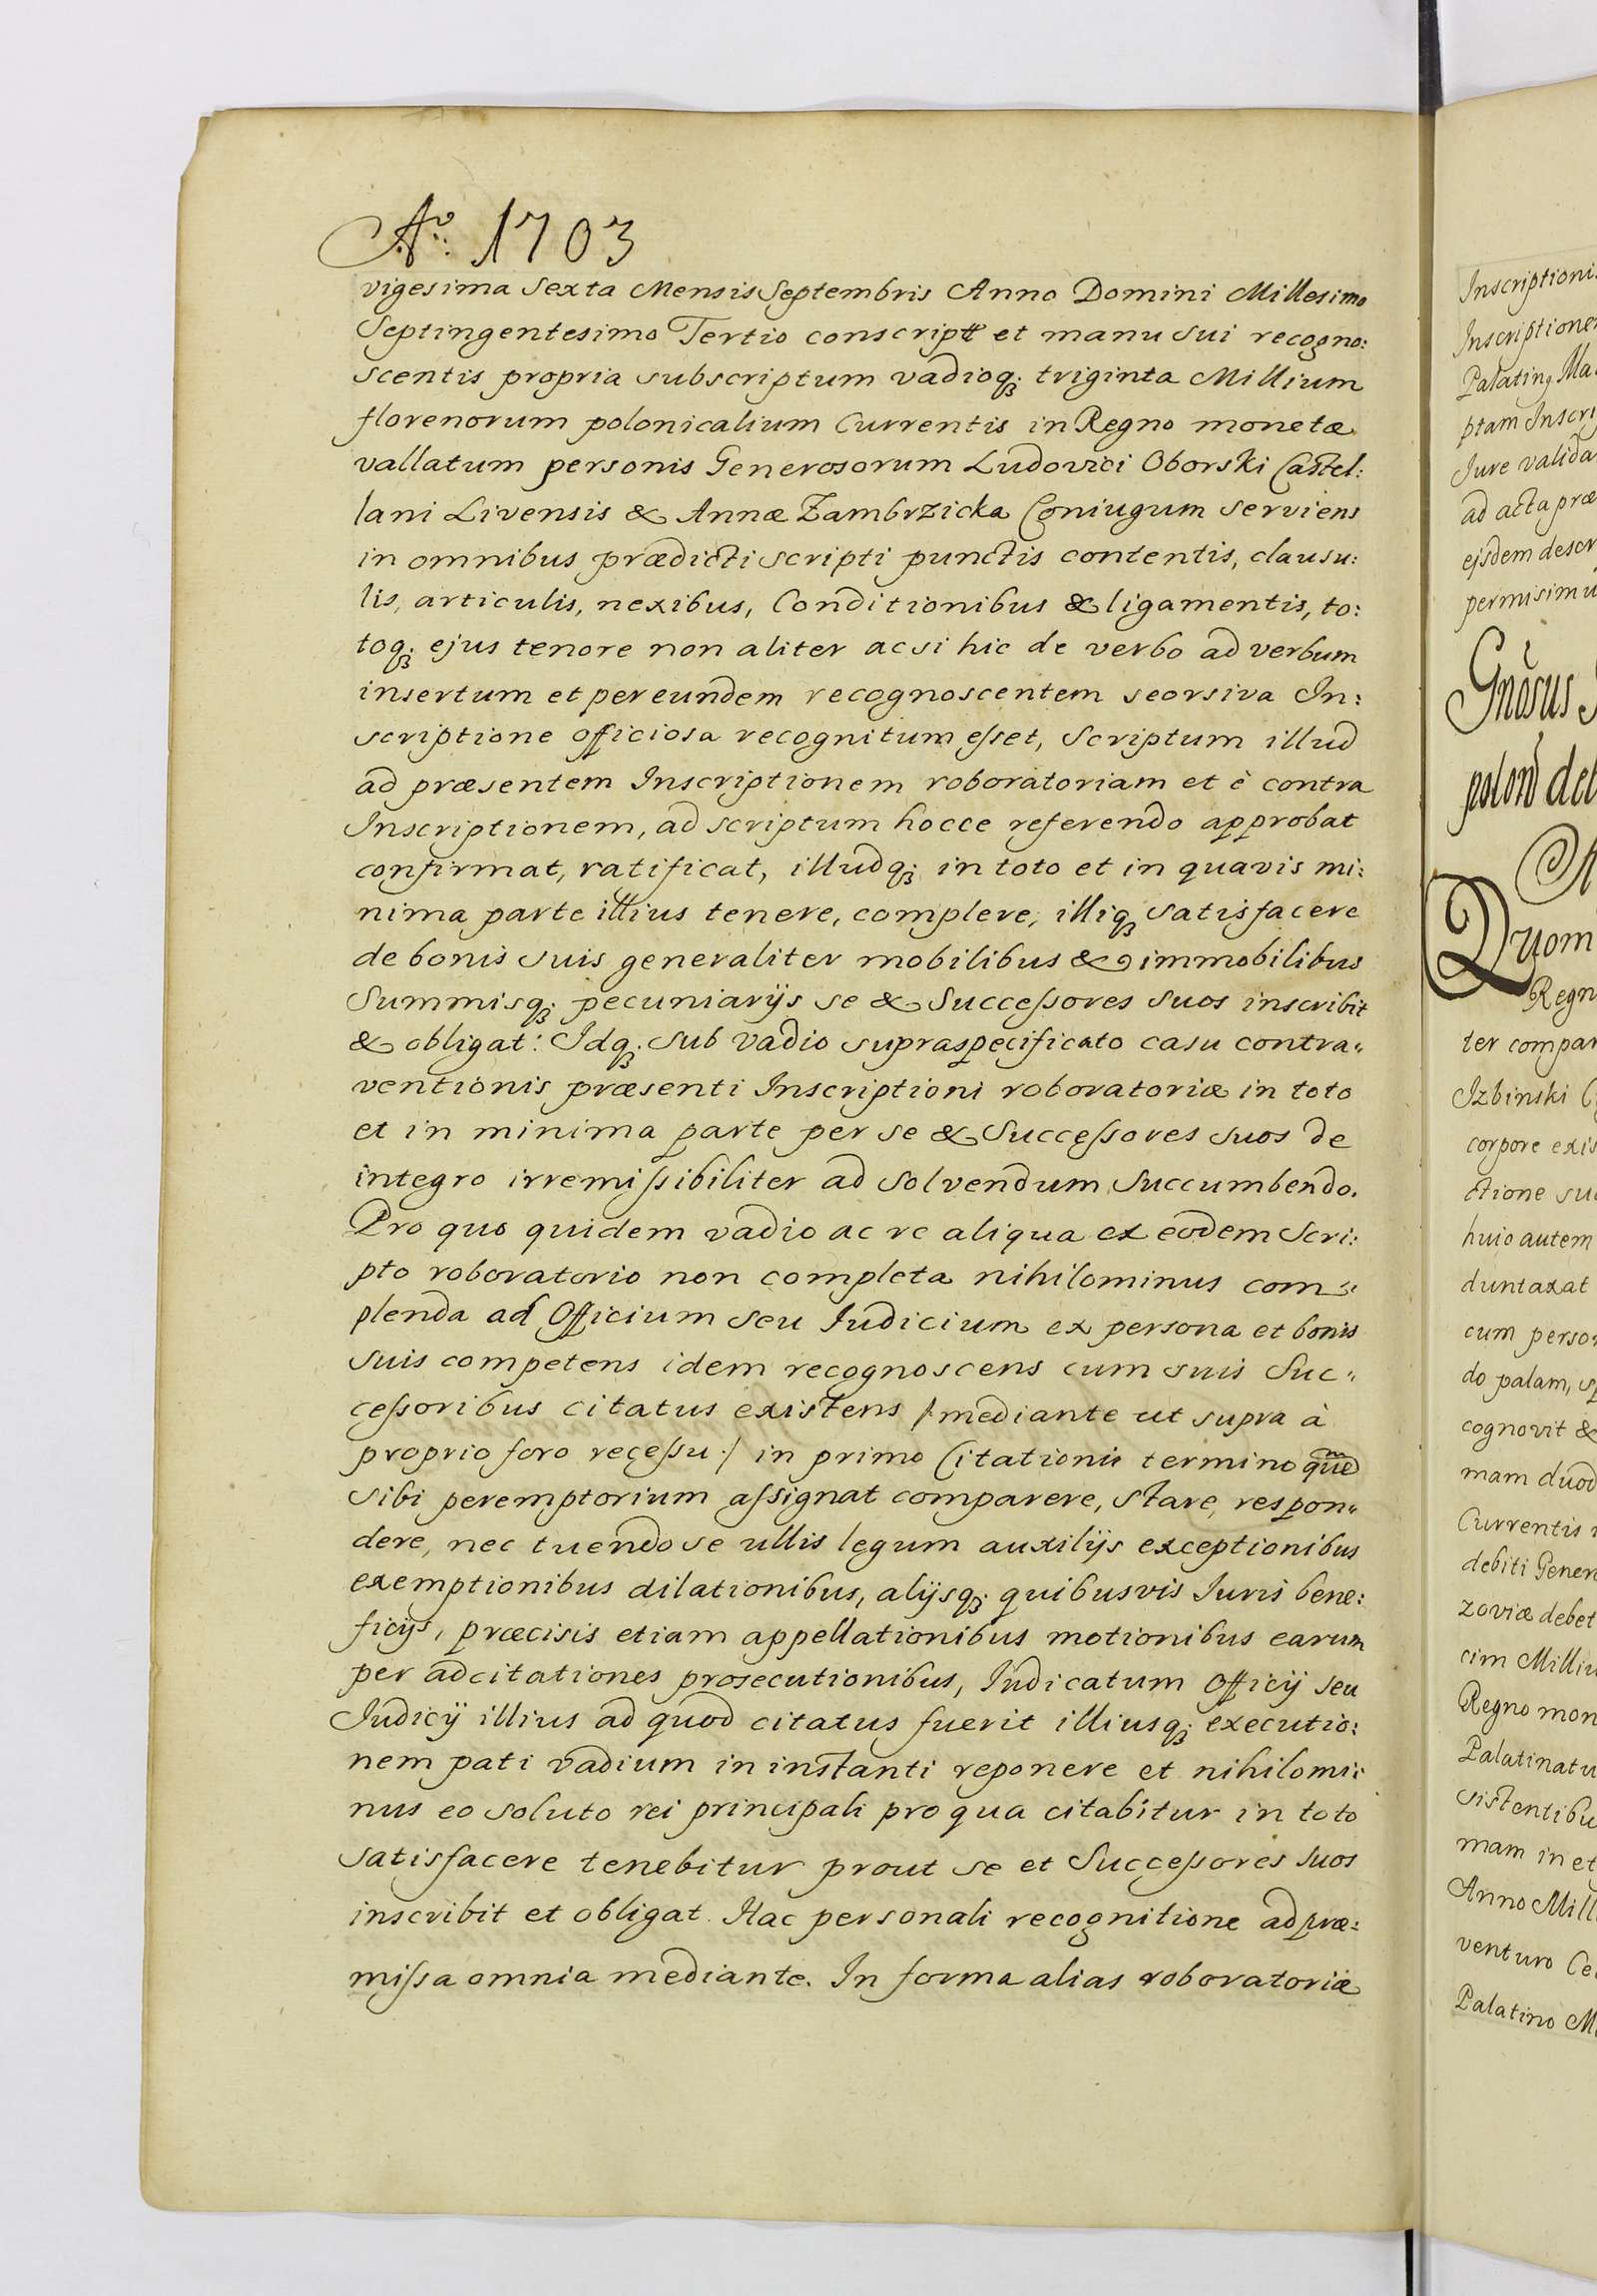 Aº: 1703
vigesima Sexta Mensis Septembris Anno Domini Millesimo
Septingentesimo Tertio conscript et manu sui recogno:
scentis propria subscriptum vadioq; triginta Millium
florenorum polonicalium Currentis in Regno monetæ
vallatum personis Generosorum Ludovici Oborski Castel:
lani Livensis & Annæ Zambrzicka Coniugum serviens
in omnibus prædicti scripti punctis contentis, clausu:
lis, articulis, nexibus, Conditionibus & ligamentis, to:
toq; ejus tenore non aliter ac si hic de verbo ad verbum
insertum et per eundem recognoscentem seorsiva In:
scriptione officiosa recognitum esset, Scriptum illud
ad præsentem Inscriptionem roboratoriam et è contra
Inscriptionem, ad scriptum hocce referendo approbat
confirmat, ratificat, illudq; in toto et in quavis mi:
nima parte illius tenere, complere, illiq; satisfacere
de bonis suis generaliter mobilibus & immobilibus
Summisq; pecuniarijs se & Successores suos inscribit
& obligat: Idq; sub vadio supraspecificato casu contra„
ventionis præsenti Inscriptioni roboratoriæ in toto
et in minima parte per se & Successores suos de
integro irremissibiliter ad solvendum succumbendo.
Pro quo quidem vadio ac re aliqua ex eodem Scri:
pto roboratorio non completa nihilominus com„
plenda ad Officium seu Iudicium ex persona et bonis
suis competens idem recognoscens cum suis Suc„
cessoribus citatus existens /: mediante ut supra à
proprio foro recessu :/ in primo Citationis termino quem
sibi peremptorium assignat comparere, stare, respon„
dere, nec tuendo se ullis legum auxilijs exceptionibus
exemptionibus dilationibus, alijsq; quibusvis Iuris bene:
ficijs, præcisis etiam appellationibus motionibus earum
per adcitationes prosecutionibus, Iudicatum Officij seu
Iudicij illius ad quod citatus fuerit illiusq; executio:
nem pati vadium in instanti reponere et nihilomi:
nus eo soluto rei principali pro qua citabitur in toto
satisfacere tenebitur prout se et Successores suos
inscribit et obligat. Hac personali recognitione ad præ:
missa omnia mediante. In forma alias roboratoriæ
Inscriptionis
Palatinq Ma
ptam Inscri
Jure valida
ad acta præ
ejsdem descr
permisimu
Gnosus
Quom
Regn
ter compar
Izbinski
corpore exis
ctione su
huio autem
duntaxat
cum person
do palam, sp
cognovit &
mam duod
Currentis
debiti Gener
zoviæ debet
cim Milliu
Regno mon
Palatinatu
sistentibu
mam in et
Anno Mill
venturo Ce
Palatino M